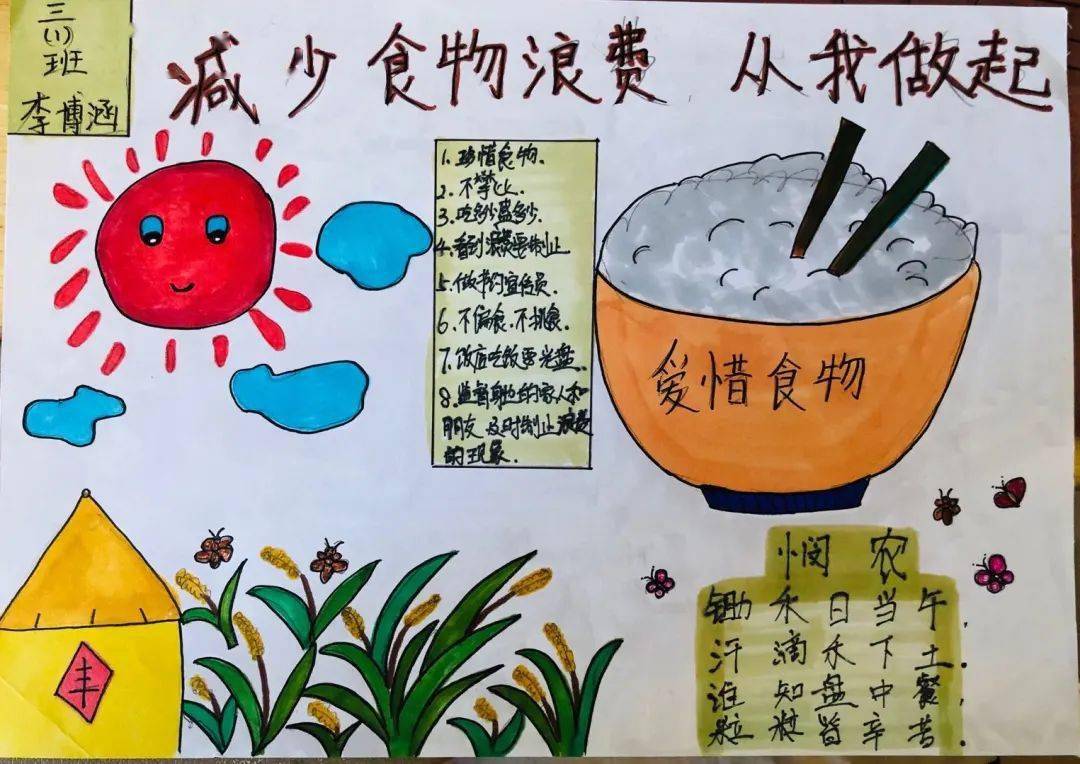 三
(1)
班
李博涵
减少食物浪费 从我做起
1. 珍惜食物.
2. 不攀比.
3. 吃多少盛多少.
4. 看到浪费要制止
5. 做节约宣传员.
6. 不偏食.不挑食.
7. 饭店吃饭要光盘.
8. 监督身边的家人和
朋友及时制止浪费
的现象.
爱惜食物
悯农
锄禾日当午,
汗滴禾下土.
谁知盘中餐,
粒粒皆辛苦.
丰